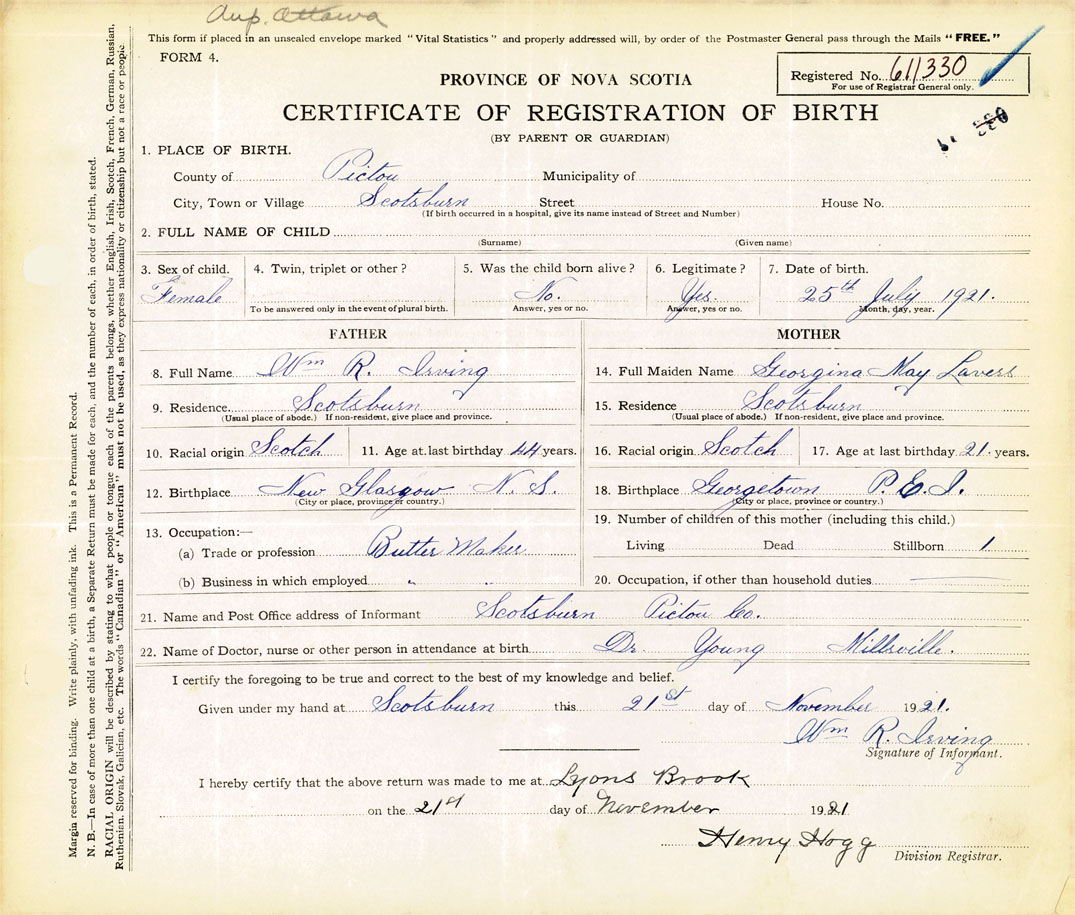 Dup. Ottawa
This form if placed in an unsealed envelope marked "Vital Statistics" and properly addressed will, by order of the Postmaster General pass through the Mails "FREE."
FORM 4.
Registered No. 611330
For use of Registrar General only.
PROVINCE OF NOVA SCOTIA
CERTIFICATE OF REGISTRATION OF BIRTH
(BY PARENT OR GUARDIAN)
1. PLACE OF BIRTH.
County of Pictou Municipality of
City, Town or Village Scotsburn Street House No.
(If birth occurred in a hospital, give its name instead of Street and Number)
2. FULL NAME OF CHILD
(Surname) (Given name)
3. Sex of child. 4. Twin, triplet or other? 5. Was the child born alive? 6. Legitimate? 7. Date of birth.
Female No. Yes. 25th July 1921.
To be answered only in the event of plural birth. Answer, yes or no. Answer, yes or no. Month, day, year.
FATHER
8. Full Name Wm R. Irving
9. Residence Scotsburn
(Usual place of abode.) If non-resident, give place and province.
10. Racial origin Scotch 11. Age at last birthday 44 years.
12. Birthplace New Glasgow N. S.
(City or place, province or country.)
13. Occupation:—
(a) Trade or profession Butter Maker
(b) Business in which employed " "
MOTHER
14. Full Maiden Name Georgina May Lavers
15. Residence Scotsburn
(Usual place of abode.) If non-resident, give place and province.
16. Racial origin Scotch 17. Age at last birthday 21. years.
18. Birthplace Georgetown P. E. I.
(City or place, province or country.)
19. Number of children of this mother (including this child.)
Living Dead Stillborn 1
20. Occupation, if other than household duties
21. Name and Post Office address of Informant Scotsburn Pictou Co.
22. Name of Doctor, nurse or other person in attendance at birth Dr. Young Millsville.
I certify the foregoing to be true and correct to the best of my knowledge and belief.
Given under my hand at Scotsburn this 21st day of November 1921.
Wm R. Irving
Signature of Informant.
I hereby certify that the above return was made to me at Lyons Brook
on the 21st day of November 1921
Henry Hogg
Division Registrar.
Margin reserved for binding. Write plainly, with unfading ink. This is a Permanent Record.
N. B.—In case of more than one child at a birth, a Separate Return must be made for each, and the number of each, in order of birth, stated.
RACIAL ORIGIN will be described by stating to what people or tongue each of the parents belongs, whether English, Irish, Scotch, French, German, Russian,
Ruthenian, Slovak, Galician, etc. The words "Canadian" or "American" must not be used, as they express nationality or citizenship but not a race or people.